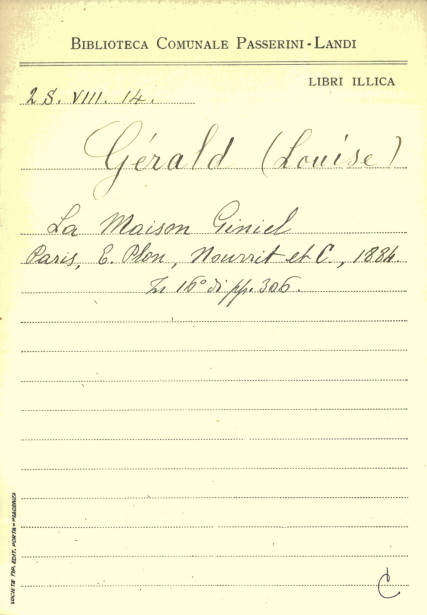 BIBLIOTECA COMUNALE PASSERINI-LANDI
LIBRI ILLICA
2 S. VIII. 14.
Gérald (Louise)
La Maison Giniel
Paris, E. Plon, Nourrit et C., 1884.
In 16° di pp. 306.
SOCIETÀ TIP. EDIT. PORTA-PIACENZA
C